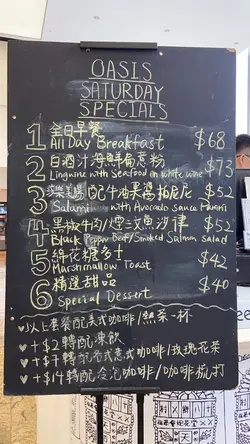 OASIS
SATURDAY
SPECIALS
1 全日早餐
All Day Breakfast $68
2 白酒汁海鮮扁意粉
Linguine with Seafood on white wine $73
3 配牛油果醬帕尼尼 $52
Salami with Avocado sauce Panini
4 黑椒牛肉/煙三文魚沙律 $52
Black Pepper Beef/Smoked Salmon Salad
5 綿花糖多士 $42
Marshmallow Toast
6 精選甜品 $40
Special Dessert
♡以上套餐配美式咖啡/熱茶一杯
♡+$2轉配凍飲
♡+$7轉配各式意式咖啡/玫瑰花茶
♡+$14轉配冷泡咖啡/咖啡梳打